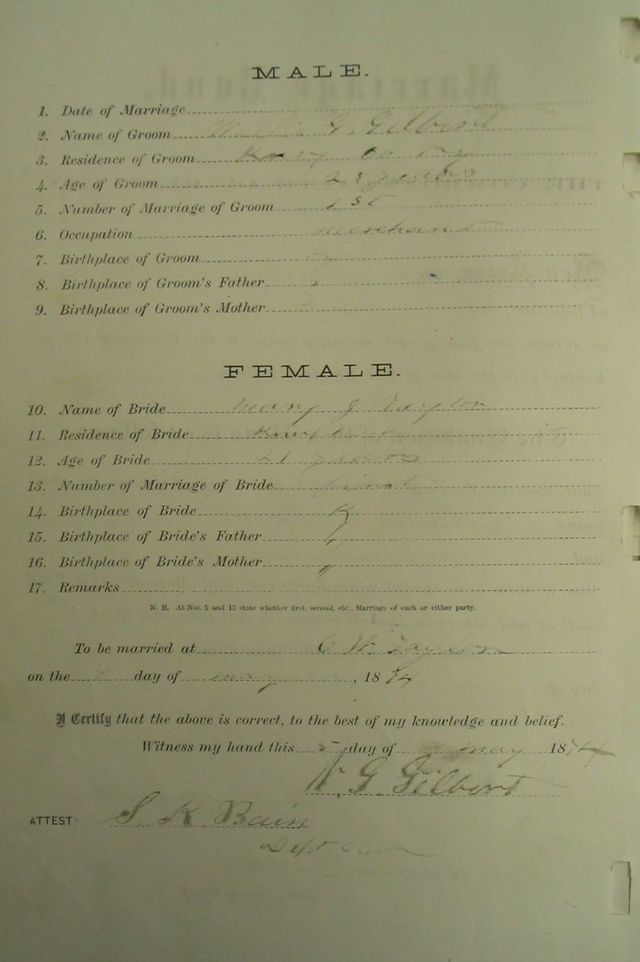 MALE.
1. Date of Marriage
2. Name of Groom G. Gilbert
3. Residence of Groom Knox Co Ky
4. Age of Groom 25 years
5. Number of Marriage of Groom 1st
6. Occupation Merchant
7. Birthplace of Groom
8. Birthplace of Groom's Father
9. Birthplace of Groom's Mother
FEMALE.
10. Name of Bride Mary J Taylor
11. Residence of Bride Knox
12. Age of Bride years
13. Number of Marriage of Bride
14. Birthplace of Bride
15. Birthplace of Bride's Father "
16. Birthplace of Bride's Mother "
17. Remarks
N. B. At Nos. 5 and 13 state whether first, second, etc., Marriage of each or either party.
To be married at Taylors
on the day of May, 1874
I Certify that the above is correct, to the best of my knowledge and belief.
Witness my hand this 5 day of May 1874
W. G. Gilbert
ATTEST: S. K. Bain
Dept Clerk